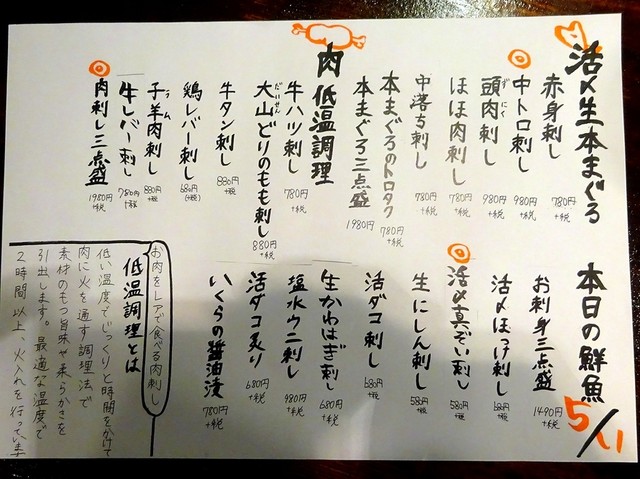 活〆生本まぐろ
赤身刺し 780円+税
中トロ刺し 980円+税
頭肉刺し 980円+税
ずにく
ほほ肉刺し 780円+税
中落ち刺し 780円+税
本まぐろのトロタク 780円+税
本まぐろ三点盛 1980円
肉 低温調理
牛ハツ刺し 780円+税
大山どりのもも刺し 880円+税
だいせん
牛タン刺し 880円+税
鶏レバー刺し 680円(+税)
子羊肉刺し 880円+税
ラム
牛レバー刺し 780円+税
肉刺し三点盛 1980円+税
本日の鮮魚 5/11
お刺身三点盛 1490円+税
活〆ほっけ刺し 680円+税
活〆真ぞい刺し 580円+税
生にしん刺し 580円+税
活ダコ刺し 680円+税
生かわはぎ刺し 680円+税
塩水ウニ刺し 980円+税
活ダコ炙り 680円+税
いくらの醤油漬 780円+税
お肉をレアで食べる肉刺し
低温調理とは
低い温度でじっくりと時間をかけて
肉に火を通す調理法で
素材のもつ旨味や柔らかさを
引出します。最適な温度で
2時間以上、火入れを行っています